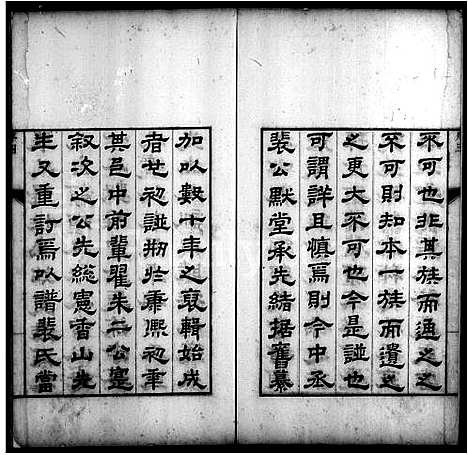 不可也非其族而通之之
不可則知本一族而遺之
之更大不可也今是譜也
可謂詳且慎焉則今中丞
裴公默堂承先緒據舊纂
加以數十年之裒輯始成
者也初譜刱於康熙初年
其邑中前輩翟朱二公寔
叙次之公先總憲香山先
生又重訂焉以譜裴氏當